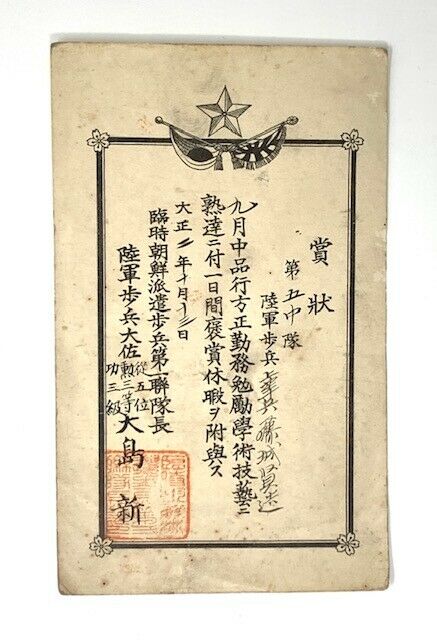 賞狀
第五中隊
陸軍歩兵
九月中品行方正勤務勉勵學術技藝ニ
熟達ニ付一日間褒賞休暇ヲ附與ス
大正二年十月十三日
臨時朝鮮派遣歩兵第一聯隊長
陸軍歩兵大佐 從五位 勲三等 功三級 大島新